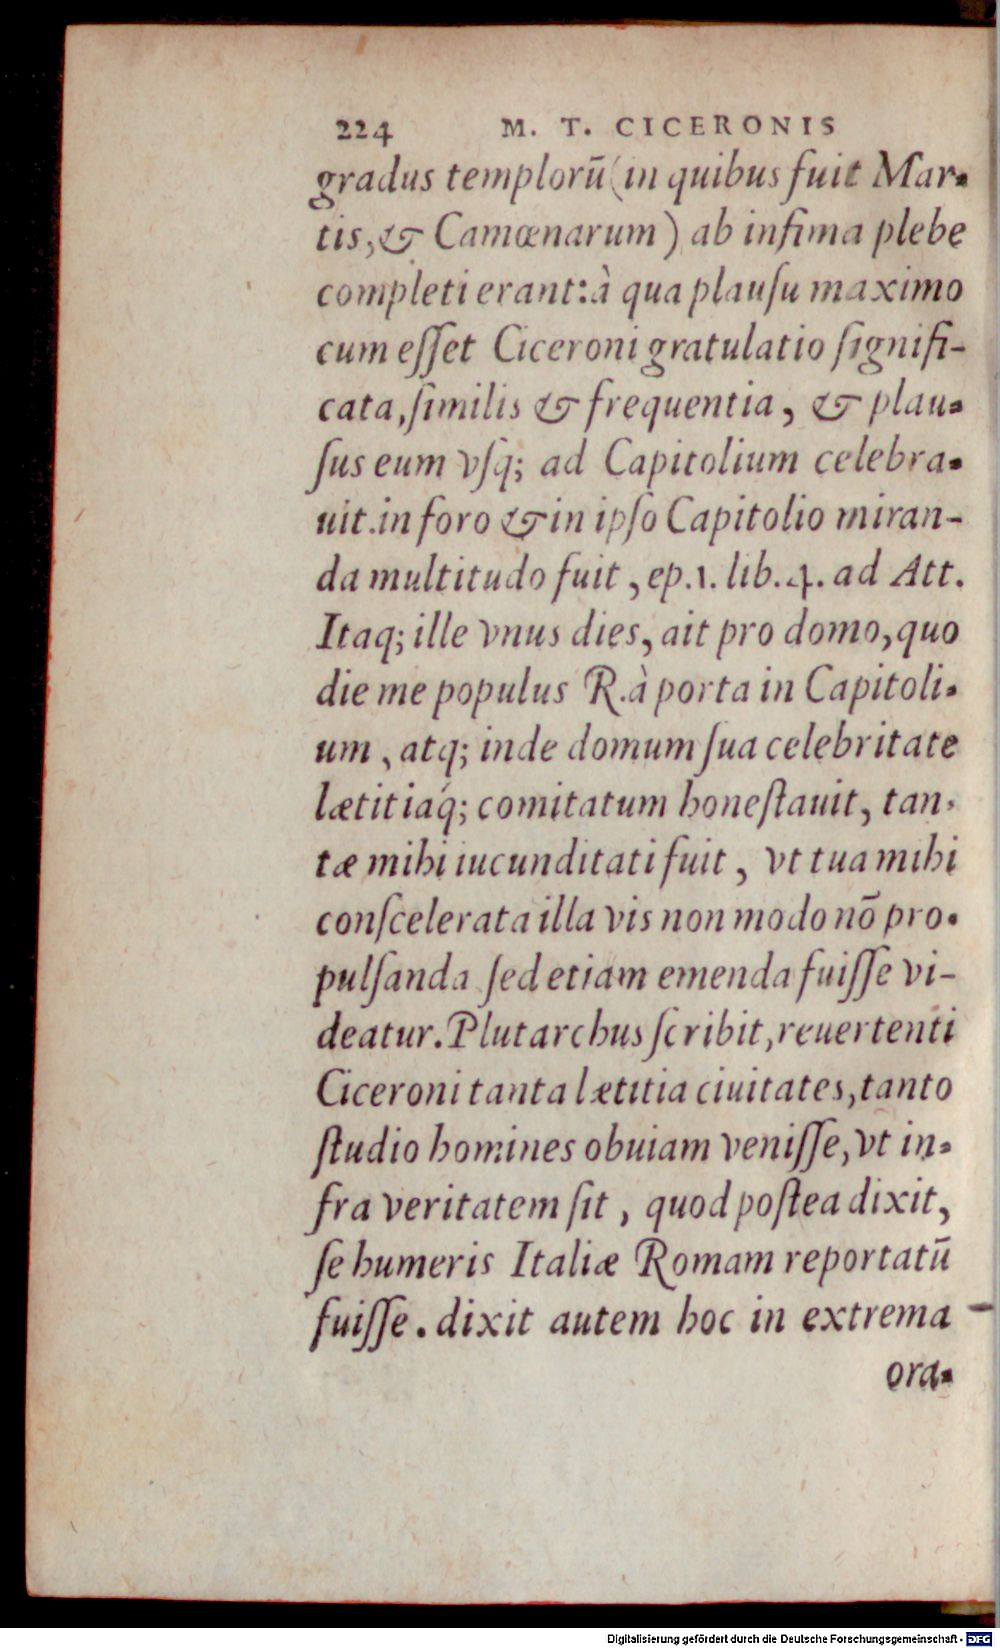 224 M. T. CICERONIS
gradus templorū (in quibus fuit Mar-
tis, & Camœnarum) ab infima plebe
completi erant: à qua plauſu maximo
cum eſſet Ciceroni gratulatio ſignifi-
cata, ſimilis & frequentia, & plau-
ſus eum vſq; ad Capitolium celebra-
uit. in foro & in ipſo Capitolio miran-
da multitudo fuit, ep. 1. lib. 4. ad Att.
Itaq; ille vnus dies, ait pro domo, quo
die me populus R. à porta in Capitoli-
um, atq; inde domum ſua celebritate
lætitiaq́; comitatum honeſtauit, tan-
tæ mihi iucunditati fuit, vt tua mihi
conſcelerata illa vis non modo nō pro-
pulſanda ſed etiam emenda fuiſſe vi-
deatur. Plutarchus ſcribit, reuertenti
Ciceroni tanta lætitia ciuitates, tanto
ſtudio homines obuiam veniſſe, vt in-
fra veritatem ſit, quod poſtea dixit,
ſe humeris Italiæ Romam reportatū
fuiſſe. dixit autem hoc in extrema
ora-
Digitalisierung gefördert durch die Deutsche Forschungsgemeinschaft - DFG